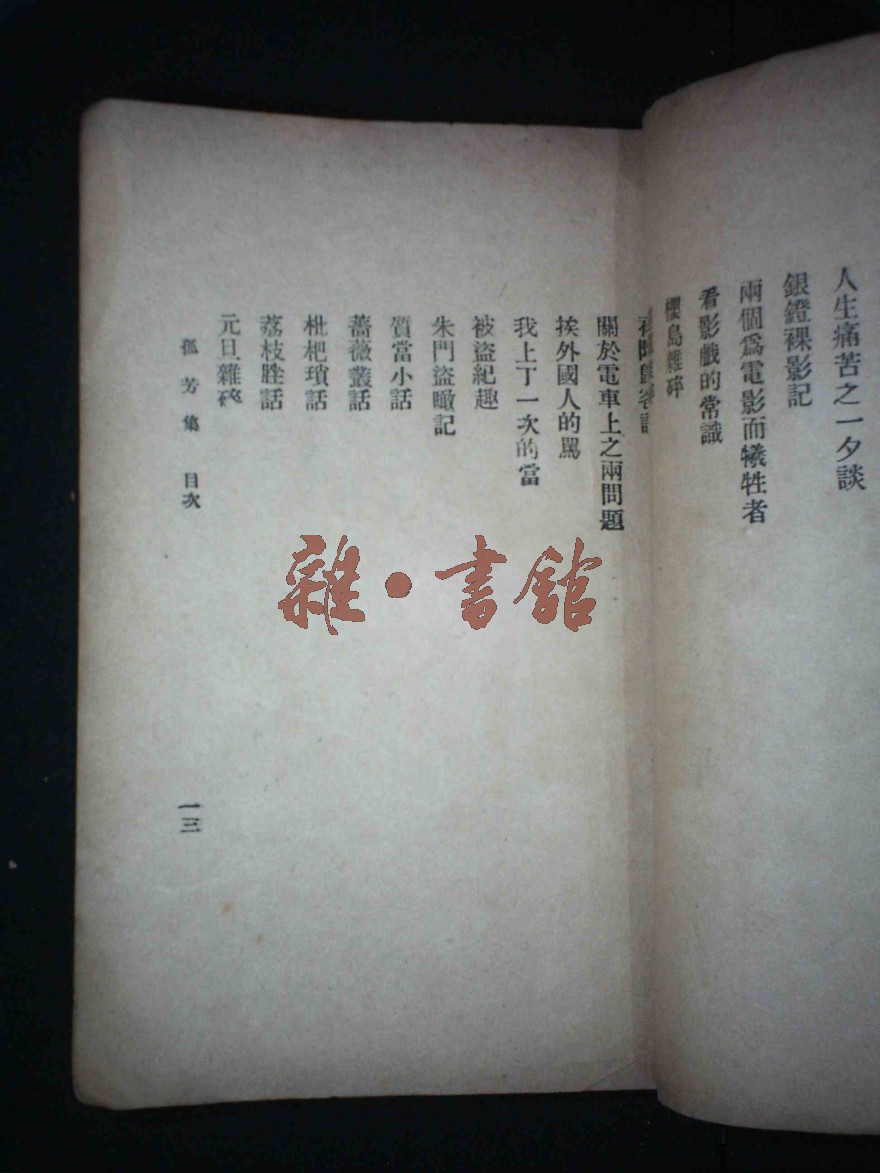 人生痛苦之一夕談
銀鐙裸影記
兩個爲電影而犧牲者
看影戲的常識
櫻島雜碎
關於電車上之兩問題
挨外國人的罵
我上了一次的當
被盜紀趣
朱門盜瞰記
質當小話
薔薇叢話
枇杷瑣話
荔枝脞話
元旦雜碎
孤芳集 目次
一三
雜·書館